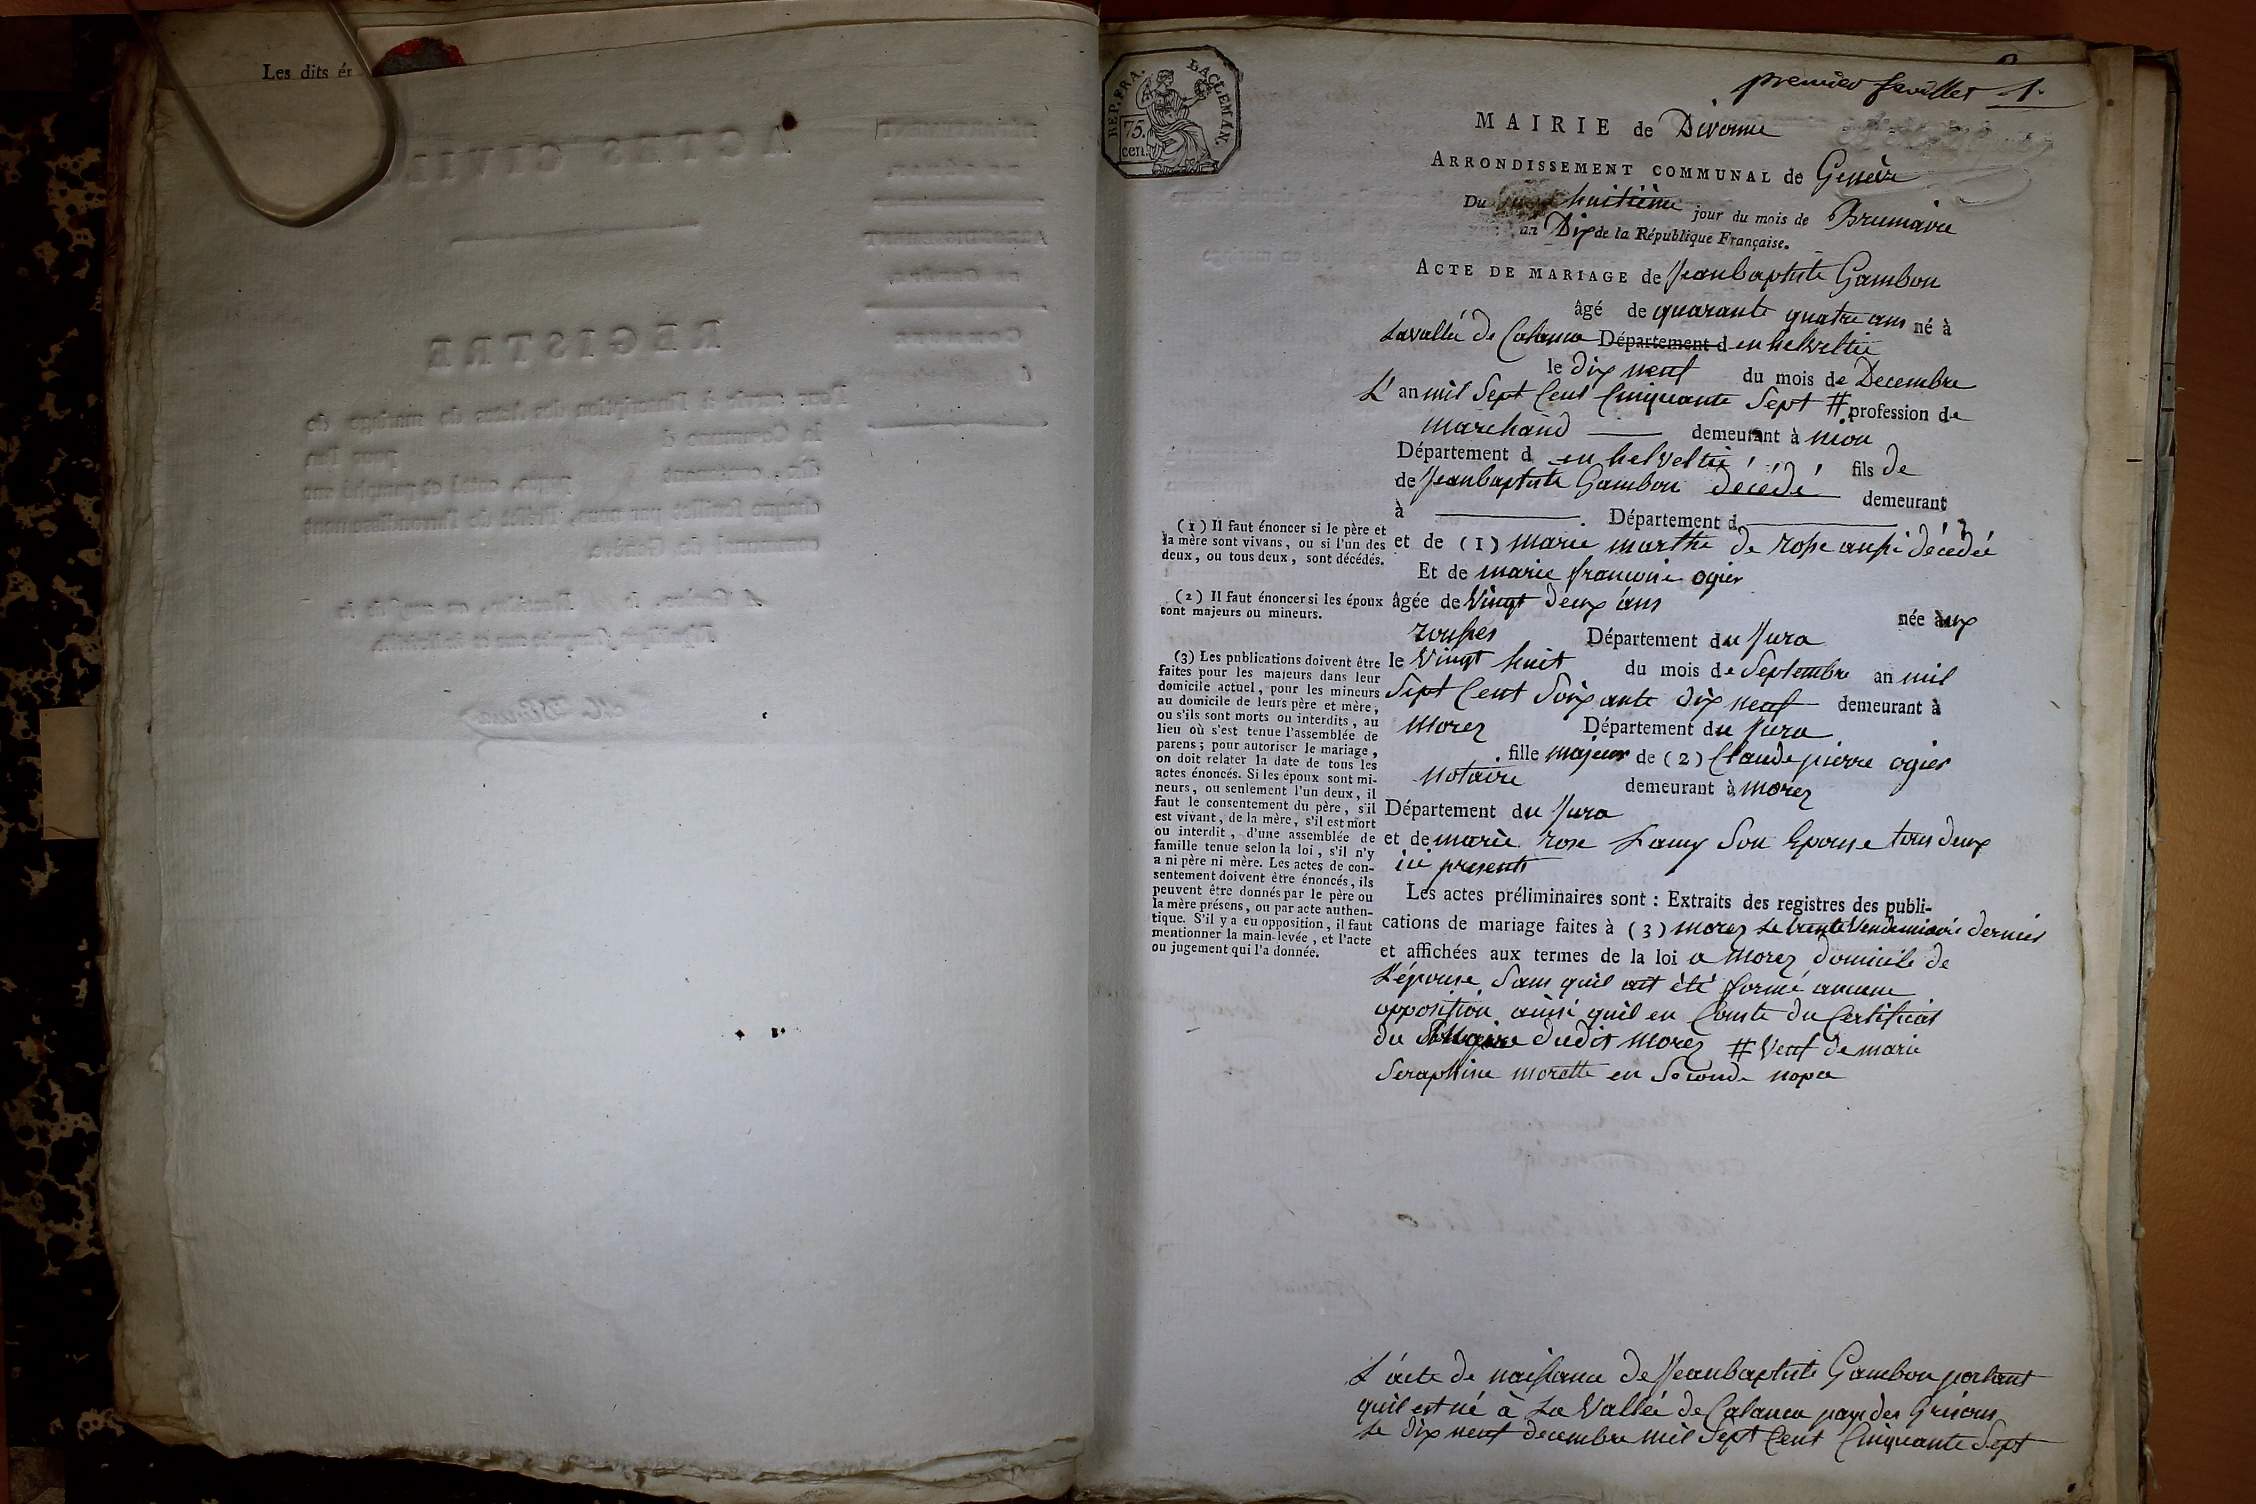 Les dits ér
ACTES CIVILS
REGISTRE
Pour servir à l'inscription des Actes de mariage de
la Commune d pour l'an
dix, contenant pages, coté et paraphé sur
chaque feuillet par nous, Préfet de l'arrondissement
communal de Genève.
DÉPARTEMENT
ARRONDISSEMENT
DE GENÈVE.
COMMUNE
REP. FRA. 75. cen.
premier feuillet 1.
MAIRIE de Divonne
ARRONDISSEMENT COMMUNAL de Genève
Du huitième jour du mois de Brumaire
an Dix de la République Française.
ACTE DE MARIAGE de Jeanbaptiste Gambon
âgé de quarante quatre ans né à
Lavallée de Calanca Département d en helveltie
le dix neuf du mois de Decembre
L'an mil Sept Cent Cinquante Sept # profession de
marchand demeurant à nion
Département d en helveltie fils de
de Jeanbaptiste Gambon décédé demeurant
à Département d
(1) Il faut énoncer si le père et
la mère sont vivans, ou si l'un des
deux, ou tous deux, sont décédés.
et de (1) marie marthe de rosse aussi décédée
Et de marie francoise ogier
(2) Il faut énoncer si les époux
sont majeurs ou mineurs.
âgée de Vingt deux ans née aux
rousses Département du Jura
(3) Les publications doivent être
faites pour les majeurs dans leur
domicile actuel, pour les mineurs
au domicile de leurs père et mère,
ou s'ils sont morts ou interdits, au
lieu où s'est tenue l'assemblée de
parens; pour autoriser le mariage,
on doit relater la date de tous les
actes énoncés. Si les époux sont mi-
neurs, ou seulement l'un deux, il
faut le consentement du père, s'il
est vivant, de la mère, s'il est mort
ou interdit, d'une assemblée de
famille tenue selon la loi, s'il n'y
a ni père ni mère. Les actes de con-
sentement doivent être énoncés, ils
peuvent être donnés par le père ou
la mère présens, ou par acte authen-
tique. S'il y a eu opposition, il faut
mentionner la main-levée, et l'acte
ou jugement qui l'a donnée.
le Vingt huit du mois de Septembre an mil
Sept Cent Soixante dix neuf demeurant à
Morez Département du Jura
fille majeur de (2) Claude pierre ogier
notaire demeurant à morez
Département du Jura
et de marie rose Lamy Son Epouse tous deux
ici presents
Les actes préliminaires sont : Extraits des registres des publi-
cations de mariage faites à (3) morez le trente Vendemiaire dernier
et affichées aux termes de la loi a Morez domicile de
L'épouse Sans quil ait été formé aucune
opposition ainsi quil en Conste du Certificat
du Maire dudit Morez # Veuf de marie
Seraphine morette en Seconde nopce
L'acte de naissance de Jeanbaptiste Gambon portant
quil est né à La Vallée de Calanca pays des Grisons
Le dix neuf decembre mil Sept Cent Cinquante Sept